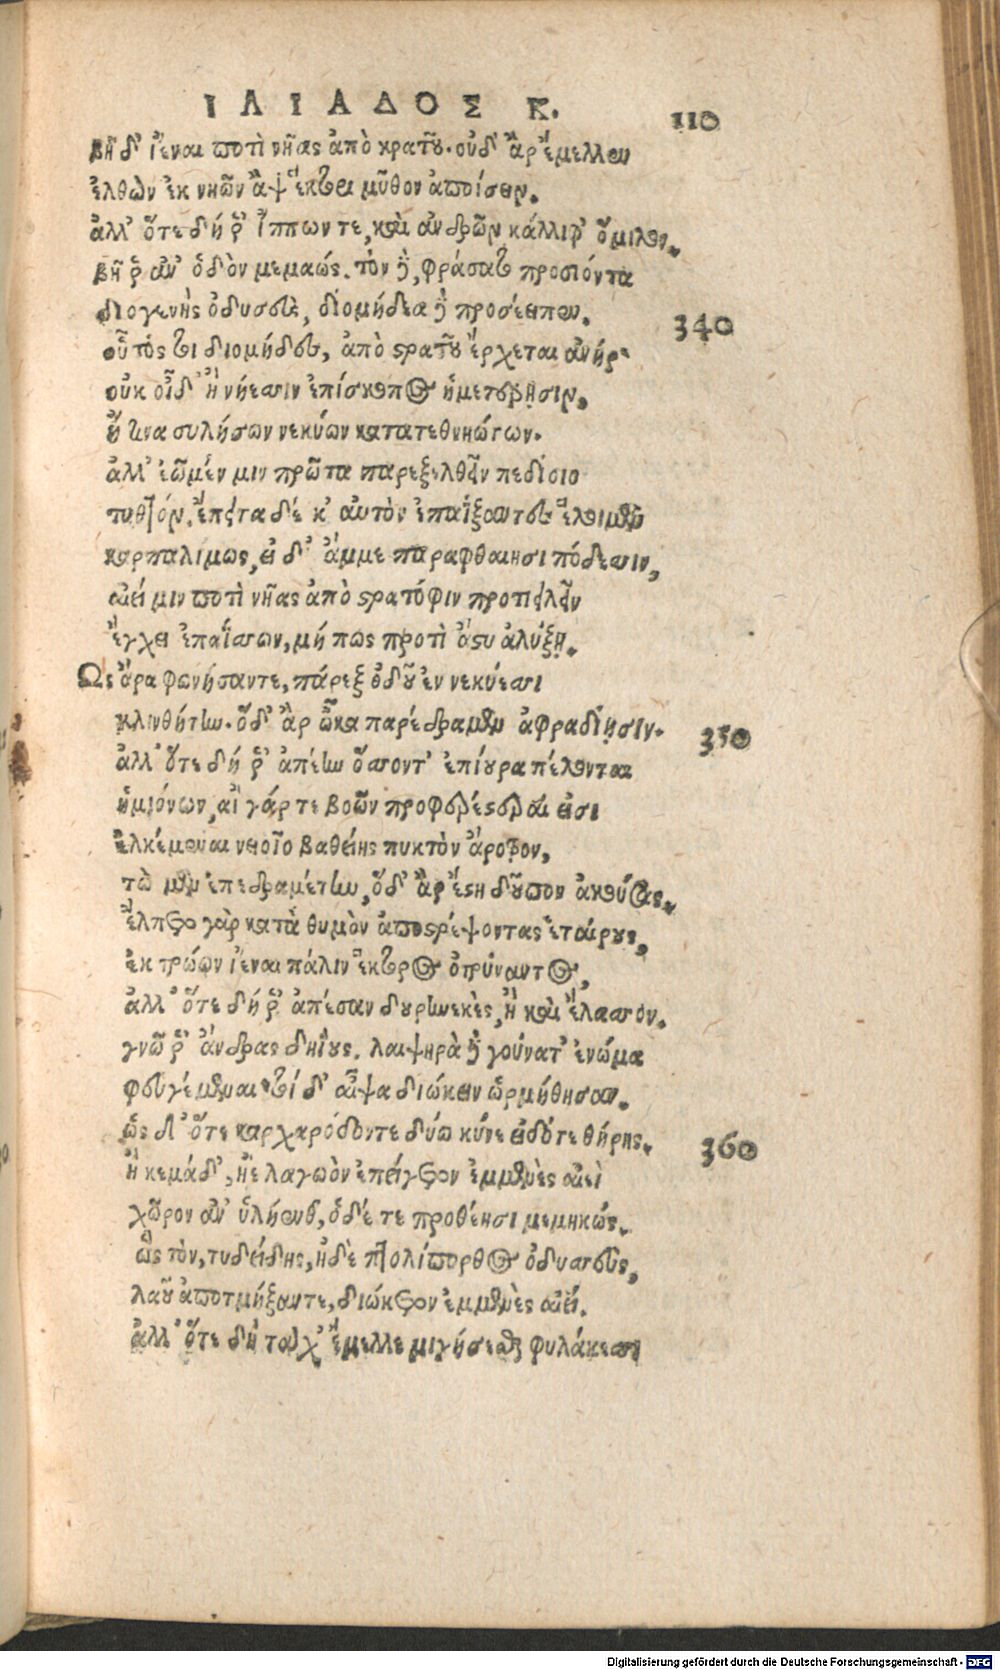 ΙΛΙΑΔΟΣ Κ. 110
βῆ δ' ἰέναι ποτὶ νῆας ἀπὸ κρατοῦ· οὐδ' ἂρ ἔμελλεν
ἐλθὼν ἐκ νηῶν ἂψ ἕκτορι μῦθον ἀποίσειν.
ἀλλ' ὅτε δή ῥ' ἵππων τε, καὶ ἀνδρῶν κάλλιφ' ὅμιλον,
βῆ ῥ' ἀν' ὁδὸν μεμαώς. τὸν δὲ, φράσατο προσιόντα
διογενὴς ὀδυσσεὺς, διομήδεα δὲ προσέειπεν.
οὗτός τις διομήδες, ἀπὸ στρατοῦ ἔρχεται ἀνήρ· 340
οὐκ οἶδ' ἢ νήεσσιν ἐπίσκοπος ἡμετέρῃσιν,
ἤ τινα συλήσων νεκύων κατατεθνηώτων.
ἀλλ' ἐῶμέν μιν πρῶτα παρεξελθεῖν πεδίοιο
τυτθόν. ἔπειτα δέ κ' αὐτὸν ἐπαΐξαντες ἕλοιμεν
καρπαλίμως, εἰ δ' ἄμμε παραφθαίησι πόδεσσιν,
αἰεί μιν ποτὶ νῆας ἀπὸ στρατόφιν προτιειλεῖν
ἔγχει ἐπαΐσσων, μή πως προτὶ ἄστυ ἀλύξῃ.
Ως ἄρα φωνήσαντε, πάρεξ ὁδοῦ ἐν νεκύεσσι
κλινθήτην. ὅδ' ἂρ ὦκα παρέδραμεν ἀφραδίῃσιν. 350
ἀλλ' ὅτε δή ῥ' ἀπέην ὅσσοντ' ἐπίουρα πέλονται
ἡμιόνων, αἳ γάρ τε βοῶν προφερέστεραί εἰσι
ἑλκέμεναι νειοῖο βαθείης πυκτὸν ἄροτρον,
τὼ μὲν ἐπεδραμέτην, ὅδ' ἂρ ἔστη δοῦπον ἀκούσας.
ἔλπετο γὰρ κατὰ θυμὸν ἀποστρέψοντας ἑταίρους,
ἐκ τρώων ἰέναι πάλιν ἕκτορος ὀτρύναντος,
ἀλλ' ὅτε δή ῥ' ἀπέσαν δουρηνεκὲς, ἢ καὶ ἔλασσον,
γνῶ ῥ' ἄνδρας δηΐους. λαιψηρὰ δὲ γούνατ' ἐνώμα
φευγέμεναι· τοὶ δ' αἶψα διώκειν ὡρμήθησαν.
ὡς δ' ὅτε καρχαρόδοντε δύω κύνε εἰδότε θήρης. 360
ἢ κεμάδ', ἠὲ λαγωὸν ἐπείγετον ἐμμενὲς αἰεὶ
χῶρον ἀν' ὑλήενθ', ὁδέ τε προθέησι μεμηκώς.
ὣς τὸν, τυδείδης, ἠδὲ πτολίπορθος ὀδυσσεὺς,
λαοῦ ἀποτμήξαντε, διώκετον ἐμμενὲς αἰεί.
ἀλλ' ὅτε δὴ τάχ' ἔμελλε μιγήσεσθαι φυλάκεσσι
Digitalisierung gefördert durch die Deutsche Forschungsgemeinschaft - DFG